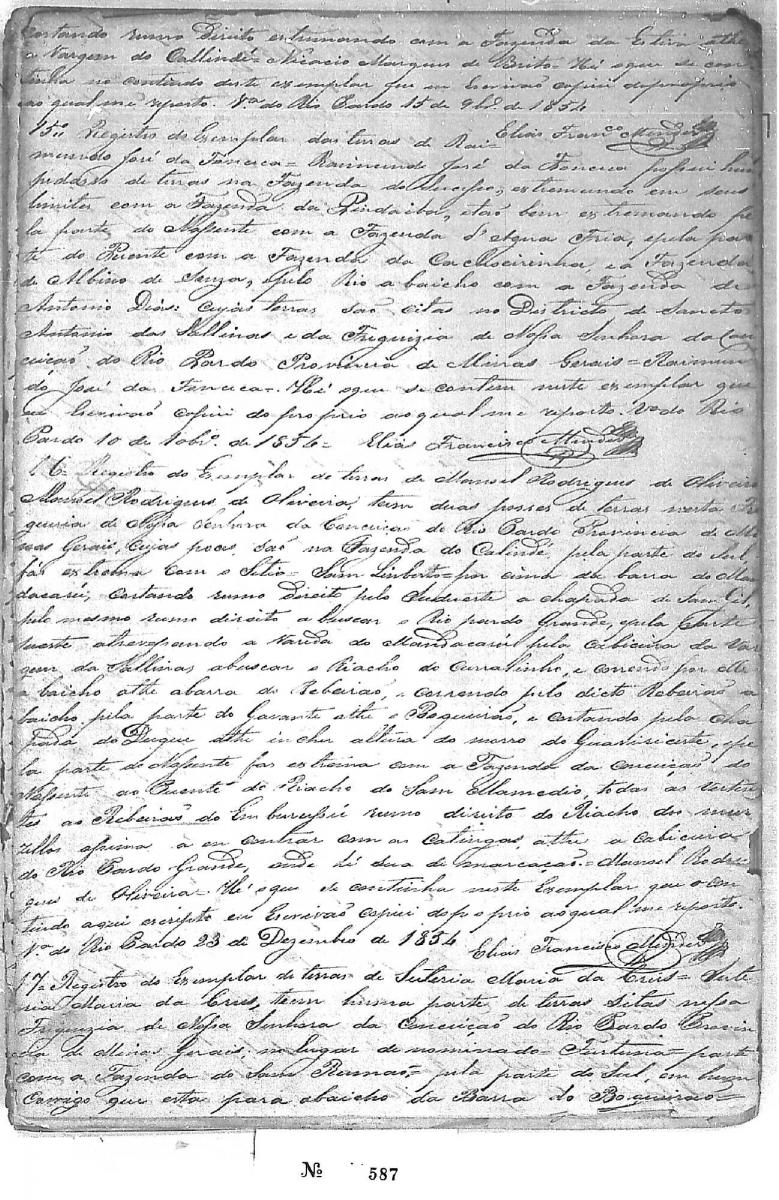 Cortando rumo Direito extremando com a Fazenda da Estiva athe
a Vargem do Callindé = Nicacio Marques de Brito = Hé o que se con
tinha no contiudo deste exemplar que eu Escrivaõ copiei do proprio
ao qual me reporto. Vª do Rio Pardo 15 de 9bro de 1854
Elias Franco Mendes
15= Registro do Exemplar das terras de Rai=
mundo José da Fonseca = Raimundo José da Fonseca possui hum
pedasso de terras na Fazenda do extremando em seus
limites com a Fazenda da Pindaiba, e taõ bem extremando pe
la parte do Nassente com a Fazenda d'Agua Fria, e pela par
te do Puente com a Fazenda da Caxoeirinha e a Fazenda
de Albino de Souza, e pelo Rio a baicho com a Fazenda de
Antonio Dias: Cujas terras saõ citas no Districto de Sancto
Antonio das Sallinas e da Freguizia de Nossa Senhora da Con
ceicaõ do Rio Pardo Provincia de Minas Gerais = Raimun
do José da Fonceca = Hé o que se contem neste exemplar que
eu Escrivaõ copiei do proprio ao qual me reporto. Vª do Rio
Pardo 10 de 10brº de 1854 = Elias Francisco Mendes
16= Registro do Exemplar de terras de Manoel Rodrigues de Oliveira
Manoel Rodrigues de Oliveira, tem duas posses de terras nesta Fre
guezia de Nossa Senhora da Conceicaõ do Rio Pardo Provincia de Mi
nas Gerais, Cujas poces, saõ na Fazenda do Calindé, pela parte do Sul
fás extrema com o Sitio = Sam Linberto = por cima da barra do Man
dacarú, cortando rumo Direito pelo a chapada de Sam Gil,
pelo mesmo rumo direito a buscar o Rio pardo Grande, e pela parte
atravessando a Vareda do Mandacarú pela Cabiceira da Var
gem da Sallinas abuscar o Riacho do Curralinho, e correndo por elle
a baicho athe abarra do Rebeiraõ, e correndo pelo dicto Rebeiraõ a
baicho, pela parte do Gavante athe o Boqueiraõ, e cortando pela Cha
pada do Duque athe altura do morro do e pe
la parte do Nassente fas extrema com a Fazenda da Conceiçaõ, do
Nassente ao Puente do Riacho do Sam Mamedio, todas as verten
tes ao Rebeiraõ do rumo direito do Riacho dos mur
zellos assima a en contrar com as Catingas, athe a Cabiceira
do Rio Pardo Grande, onde hé de marcaçaõ. = Manoel Rodri
gues de Oliveira = Hé o que se continha neste Exemplar que o con
tiudo aqui escripto eu Escrivaõ copiei do proprio ao qual me reporto.
Vª do Rio Pardo 23 de Dezembro de 1854 Elias Francisco Mendes
17= Registro do Exemplar de terras de Suteria Maria da Crus = Sute
ria Maria da Crus, tem huma parte de terras sitas nessa
Freguezia de Nossa Senhora da Conceiçaõ do Rio Pardo Provin
cia de Minas Gerais, no lugar de nominado = Furtuna = parte
com a Fazenda do Sam Romaõ = pela parte do Sul, em hum
Corrego que esta para abaicho da Barra do Boqueiraõ =
Nº 587